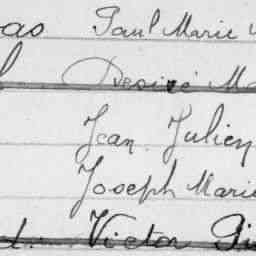 as Paul Marie
Desiré Ma
Jean Julien
Joseph Marie
Victor